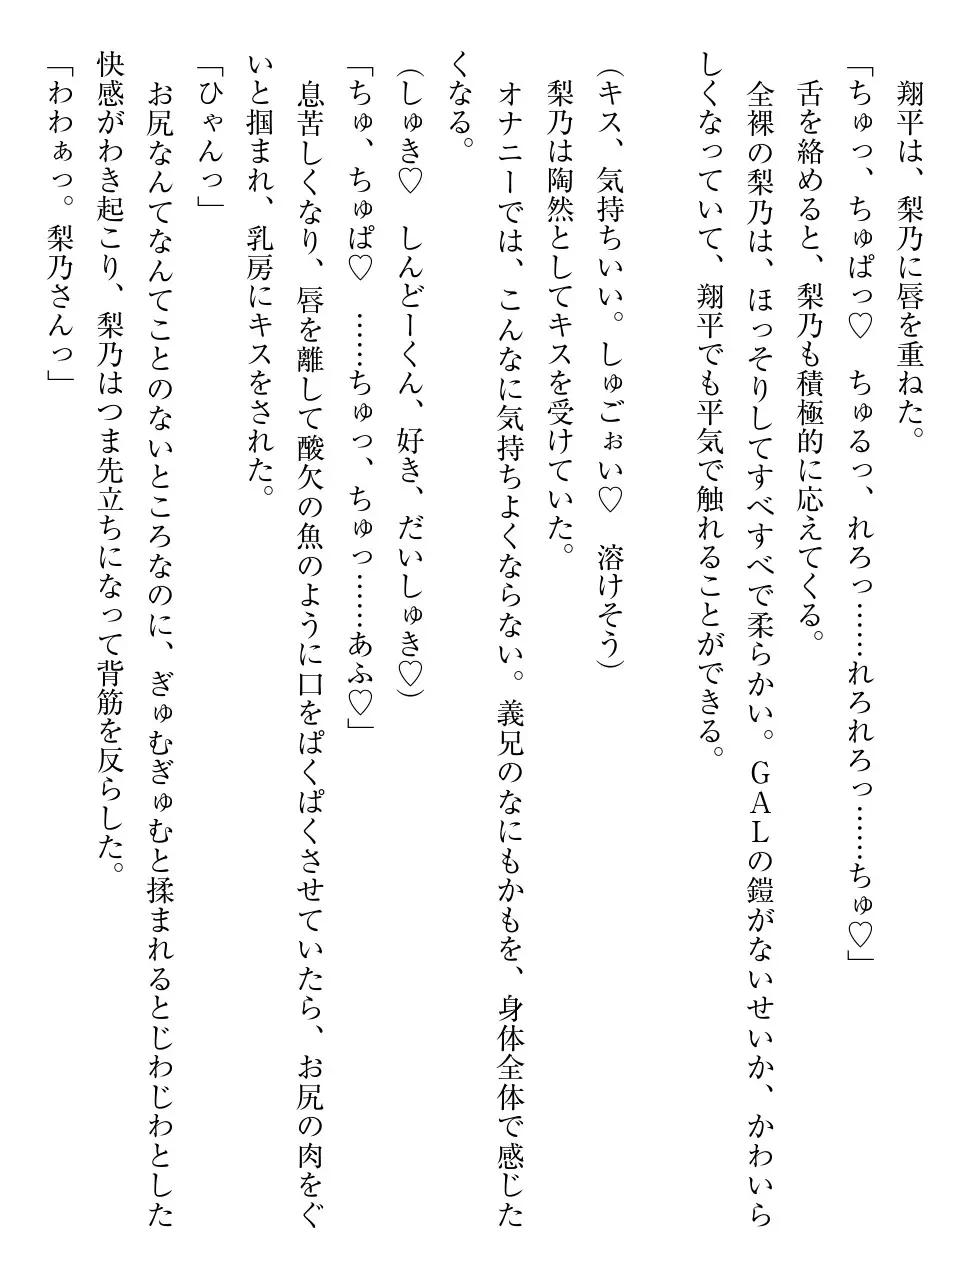 翔平は、梨乃に唇を重ねた。
「ちゅっ、ちゅぱっ♡　ちゅるっ、れろっ……れろれろっ……ちゅ♡」
舌を絡めると、梨乃も積極的に応えてくる。
全裸の梨乃は、ほっそりしてすべすべで柔らかい。ＧＡＬの鎧がないせいか、かわいら
しくなっていて、翔平でも平気で触れることができる。
（キス、気持ちいい。しゅごぉい♡　溶けそう）
梨乃は陶然としてキスを受けていた。
オナニーでは、こんなに気持ちよくならない。義兄のなにもかもを、身体全体で感じた
くなる。
（しゅき♡　しんどーくん、好き、だいしゅき♡）
「ちゅ、ちゅぱ♡　……ちゅっ、ちゅっ……あふ♡」
息苦しくなり、唇を離して酸欠の魚のように口をぱくぱくさせていたら、お尻の肉をぐ
いと掴まれ、乳房にキスをされた。
「ひゃんっ」
お尻なんてなんてことのないところなのに、ぎゅむぎゅむと揉まれるとじわじわとした
快感がわき起こり、梨乃はつま先立ちになって背筋を反らした。
「わわぁっ。梨乃さんっ」